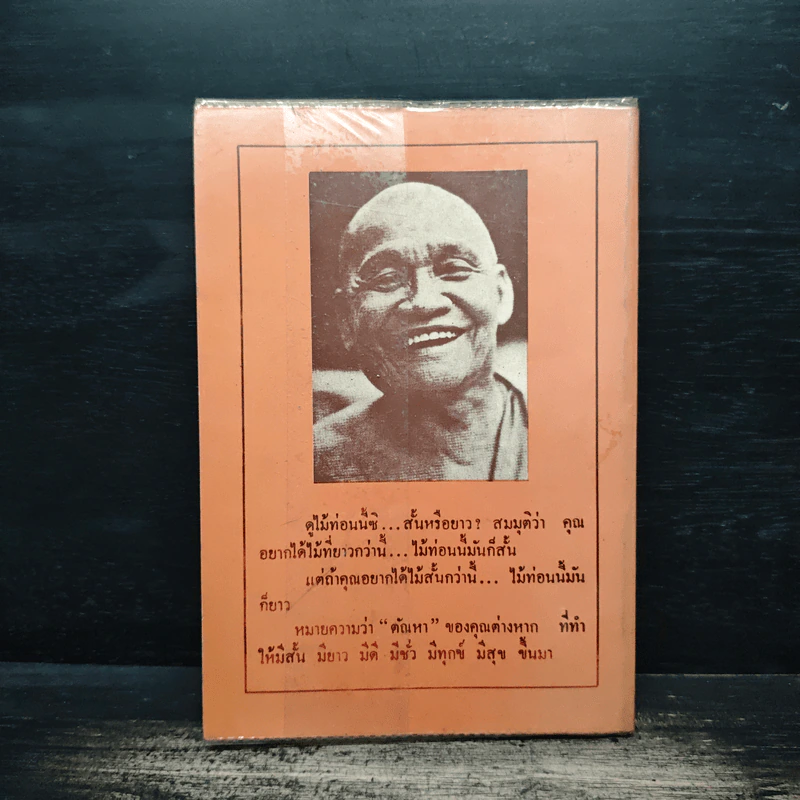 ดูไม้ท่อนนี้ซิ...สั้นหรือยาว? สมมุติว่า คุณ
อยากได้ไม้ที่ยาวกว่านี้...ไม้ท่อนนี้มันก็สั้น
แต่ถ้าคุณอยากได้ไม้สั้นกว่านี้... ไม้ท่อนนี้มัน
ก็ยาว
หมายความว่า “ตัณหา” ของคุณต่างหาก ที่ทำ
ให้มีสั้น มียาว มีดี มีชั่ว มีทุกข์ มีสุข ขึ้นมา